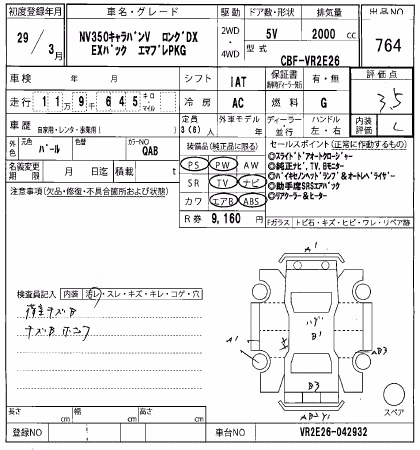 初度登録年月
車名・グレード
駆動
ドア数・形状
排気量
出品NO
29/3月
NV350キャラバンV ロングDX
EXパック エマブレPKG
2WD・4WD
5V
2000 cc
型式
CBF-VR2E26
764
車検 年 月
シフト
IAT
保証書
有・無
評価点
3.5
走行 11万9千645キロ・マイル
冷房
AC
燃料
G
車歴
自家用・レンタ・事業用( )
定員
3(6)人
外車モデル
年
ディーラー・並行
ハンドル
左・右
内装
C
外色
元色
パール
カラーNO
QAB
装備品(純正品に限る)
セールスポイント(正常に作動するもの)
PS PW AW
SR TV ナビ
カワ エアB ABS
◎スライドドアオートクロージャー
◎純正ナビ,TV,Bモニター
◎ハイキセノンヘッドランプ&オートレベライザー
◎助手席SRSエアバック
◎リアクーラー&ヒーター
名義変更期限
月 日迄
積載
t
注意事項(欠品・修復・不具合箇所および状態)
R券
9,160 円
Fガラス
トビ石・キズ・ヒビ・ワレ・リペア跡
検査員記入
内装
汚レ・スレ・キズ・キレ・コゲ・穴
A1
A1
B1
AB3
B3
スペア
長さ cm
幅 cm
高さ cm
登録NO
車台NO
VR2E26-042932